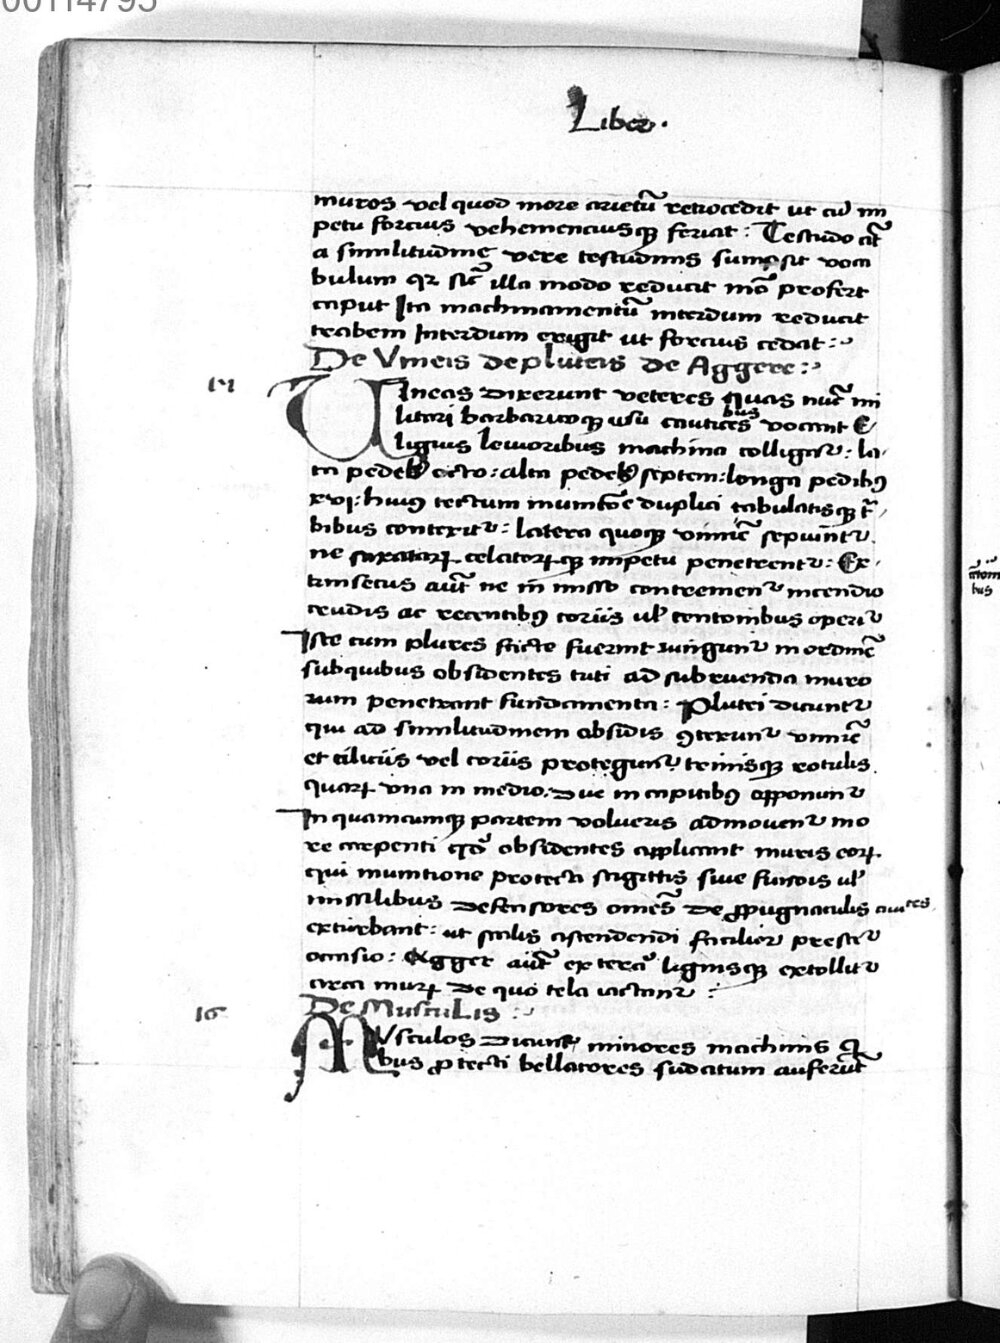 00114795
Liber.
muros vel quod more arietū retrocedit ut cū im
petu forcius vehemenciusqȝ feriat: Testudo aūt
a similitudine vere testudinis sumpsit voca
bulum qꝛ sic̄ illa modo reducit mō profert
caput Ita machinamentū interdum reducit
trabem Interdum exigit ut forcius cedat:
De Vineis de pluteis de Aggere:
Vineas dixerunt veteres quas nūc mi
litari barbaricoqȝ usu cauticesbus vocant E
lignis levioribus machina colligat᷑: la
ta pedebȝ octo: alta pedebȝ septem: longa pedibꝰ
xvi: huiꝰ tectum munitōe duplici tabulatisqȝ c̄
bibus contexit᷑: latera quoqȝ vimīe sepiūnt᷑
ne saxatoꝝ celatoꝝqȝ impetu penetrent᷑: Ex
trinsecus aūt ne in misso contremen᷑ incendio
crudis ac recentibꝰ coriis ul̓ centonibus operi᷑
Iste cum plures fᷓcte fuerint iungun᷑ in ordinē
sub quibus obsidentes tuti ad subruenda muro
rum penetrant fundamenta: Plutei dicunt᷑
qui ad similitudinem absidis ꝯtexun᷑ vimīe
et ciliciis vel coriis protegun᷑ ternisqȝ rotulis
quaꝝ una in medio. Due in capitibꝰ apponun᷑
In quamcumqȝ partem volueris admoven᷑ mo
re carpenti quō obsidentes applicant muris eoꝝ
qui munitione protecti sagittis sive fundis ul̓
missilibus defensores omēs de ꝓpugnaculis civites
exturbant: ut scalis ascendendi facilior preste᷑
occasio: Agger aūt ex terra lignisqȝ extollit᷑
circa muꝝ de quo tela iactan᷑:
De Musculis
Musculos dicunt minores machinis q̄
bus ꝓtecti bellatores sudatum auferūt
17
16